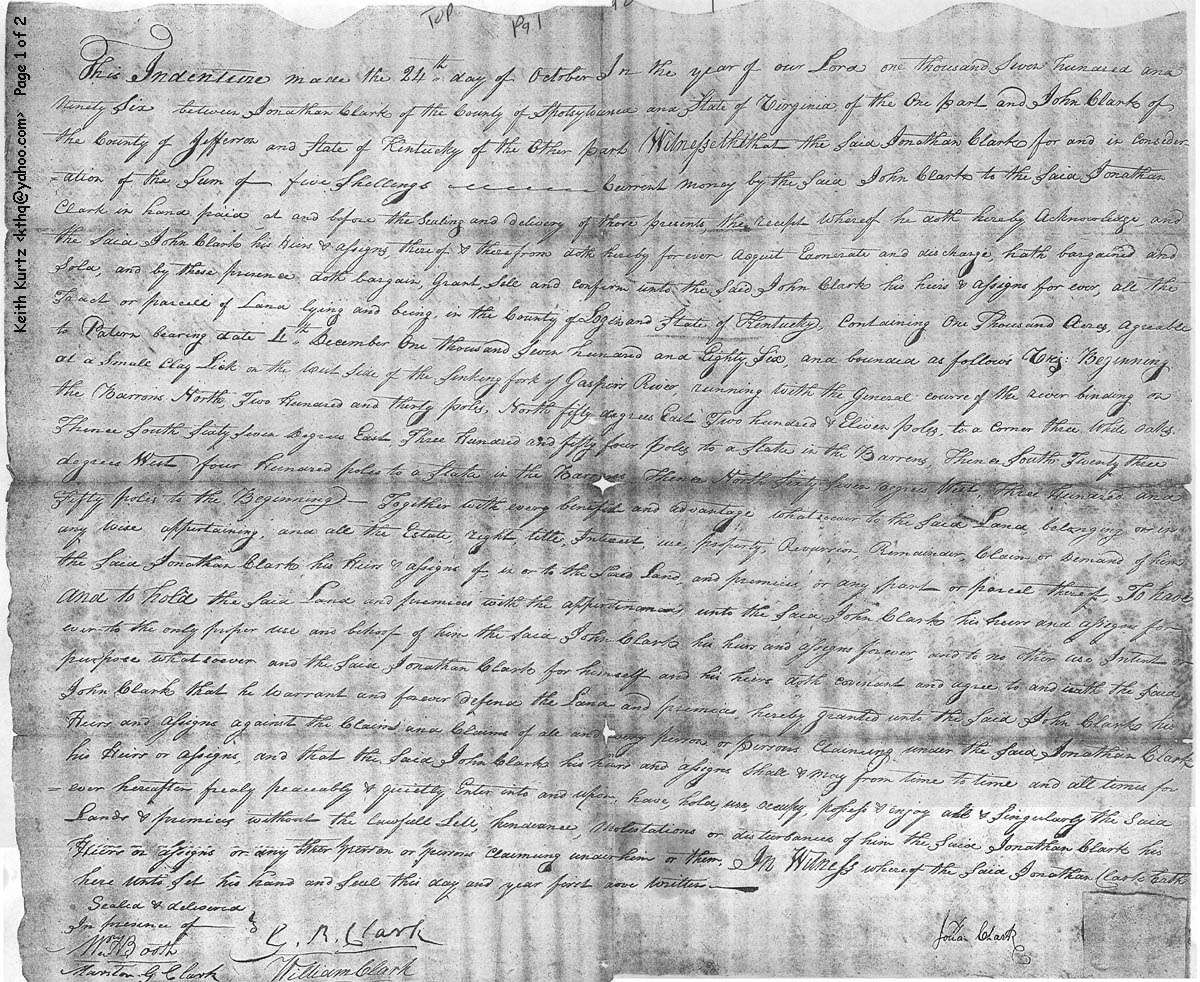 Top Pg 1
Keith Kurtz <kthq@yahoo.com> Page 1 of 2
This Indenture made the 24th day of October In the year of our Lord one thousand Seven hundred and
Ninety Six between Jonathan Clark of the County of Spotsylvania and State of Virginia of the One part and John Clark of
the County of Jefferson and State of Kentucky of the Other part Witnesseth that the Said Jonathan Clark for and in consider
=ation of the Sum of five Shellings Current Money by the Said John Clark to the Said Jonathan
Clark in hand paid at and before the Sealing and delivery of these presents, the receipt whereof he doth hereby Acknowledge, and
the Said John Clark his Heirs & assigns, thereof & therefrom doth hereby forever acquit Exonerate and discharge, hath bargained and
Sold, and by these presence doth bargain, Grant, Sele and Confirm unto the Said John Clark his heirs & assigns for ever, all the
Tract or parcell of Land lying and being, in the County of Login and State of Kentucky, Containing One Thousand Acres, agreeable
to Patern bearing date 4th December One thousand Seven hundred and Eighty Six, and bounded as follows Viz: Beginning
at a Small Clay Lick on the West Side of the Sinking fork of Gaspers River running with the General course of the river binding on
the Barrons North, Two Hundred and thirty poles, North fifty degrees East Two hundred & Eleven poles, to a corner three White oaks.
Thence South Sixty Seven Degrees East Three Hundred and fifty four Poles to a Stake in the Barrens, Thence South Twenty three
degrees West, four Hundred poles to a Stake in the Barrens Thence North Sixty Seven degrees West, Three Hundred and
Fifty poles to the Beginning) Together with every benefit and advantage whatsoever to the Said Land belonging or in
any wise appertaining, and all the Estate, right title, Interest, use, property, Revurrion, Remainder, Claim or Demand of him
the Said Jonathan Clark his Heirs & assigns of in or to the Said Land, and premises, or any part or parcel thereof To have
and to hold the Said Land and premices with the appertinances, unto the Said John Clark his heirs and assigns for
ever to the only proper use and behoof of him the Said John Clark his heirs and assigns forever, and to no other use, Intent or
purpose whatsoever and the Said Jonathan Clark for himself and his heirs doth covenant and agree to and with the Said
John Clark that he Warrant and forever defend the Land and premices, hereby granted unto the Said John Clark his
Heirs and assigns against the Claim and Claims of all and any person or persons Claiming under the Said Jonathan Clark
his Heirs or assigns, and that the Said John Clark his heirs and assigns Shall & may from time to time and all times for
= ever hereafter frealy peaceably & quietly Enter into and upon, have, hold, use, occupy, possess & enjoy all & Singularly the Said
Lands & premices without the Lawfull Lett, hendrance, Molestations or disturbances of him the Said Jonathan Clark his
Heirs or assigns or any other person or persons claiming under him or them, In Witness whereof the Said Jonathan Clark hath
here unto Set his hand and Seal this day and year first above Written
Sealed & delivered
In presence of
Wm Booth G. R. Clark Jonan Clark
Marston G Clark William Clark